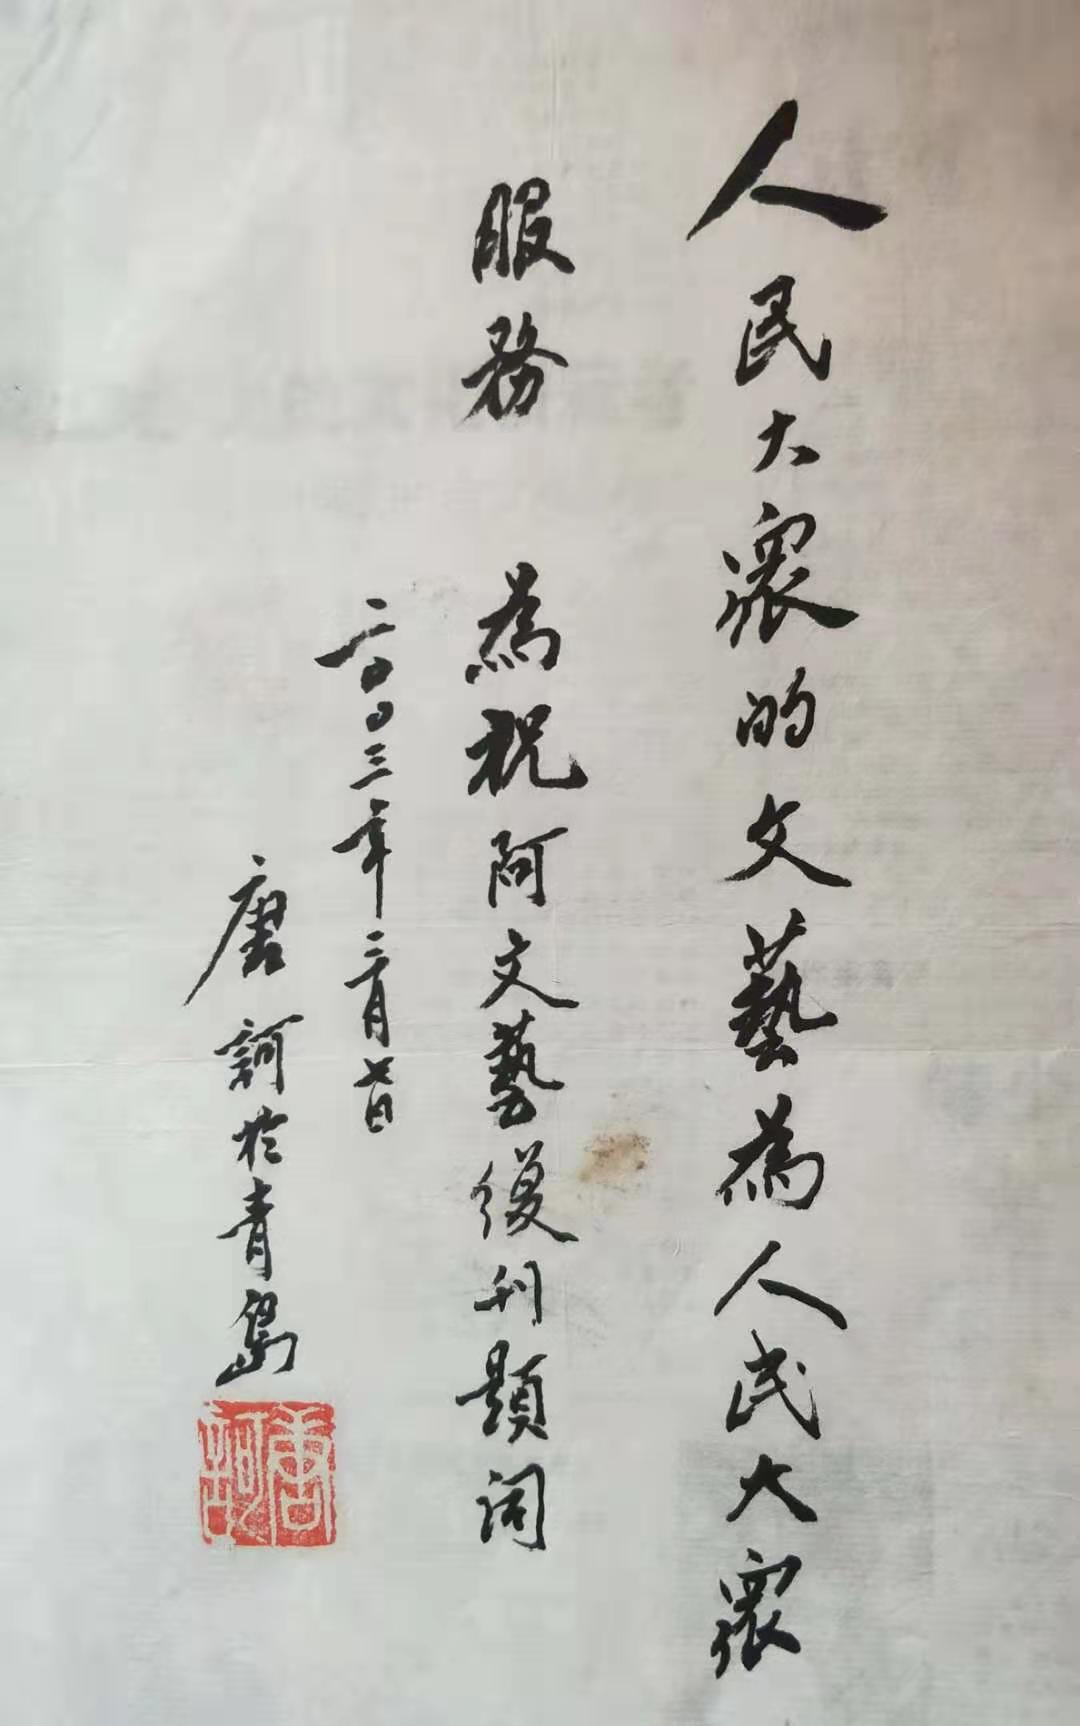 人民大衆的文藝為人民大衆
服務 為祝阿文藝復刊題詞
二〇〇三年二月七日
唐訶於青島
唐訶